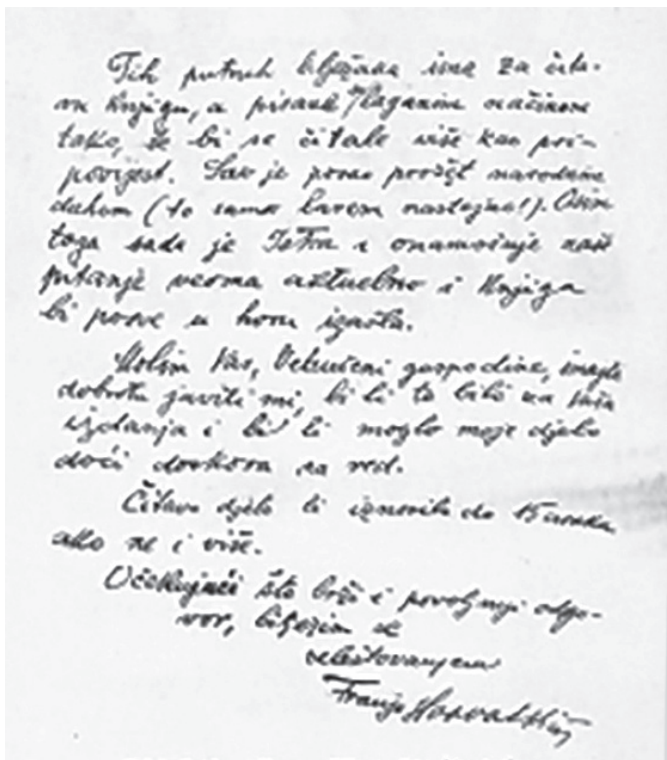 Tih putnih bilježaka ima za čita-
vu knjigu, a pisane laganim načinom
tako, da bi se čitale više kao pri-
povijest. Sav je posao prožet narodnim
duhom (to sam barem nastojao!). Osim
toga sada je Istra i onamošnje naše
pitanje veoma aktuelno i knjiga
bi posve u horu izašla.
Molim Vas, Velеučeni gospodine, imajte
dobrotu javiti mi, bi li to bilo za Vaša
izdanja i bi li moglo moje djelo
doći doskora na red.
Čitavo djelo bi iznosilo do 15 araka
ako ne i više.
Očekujući što brži i povoljniji odgo-
vor, bilježim se
sa štovanjem
Franjo Horvat Kiš